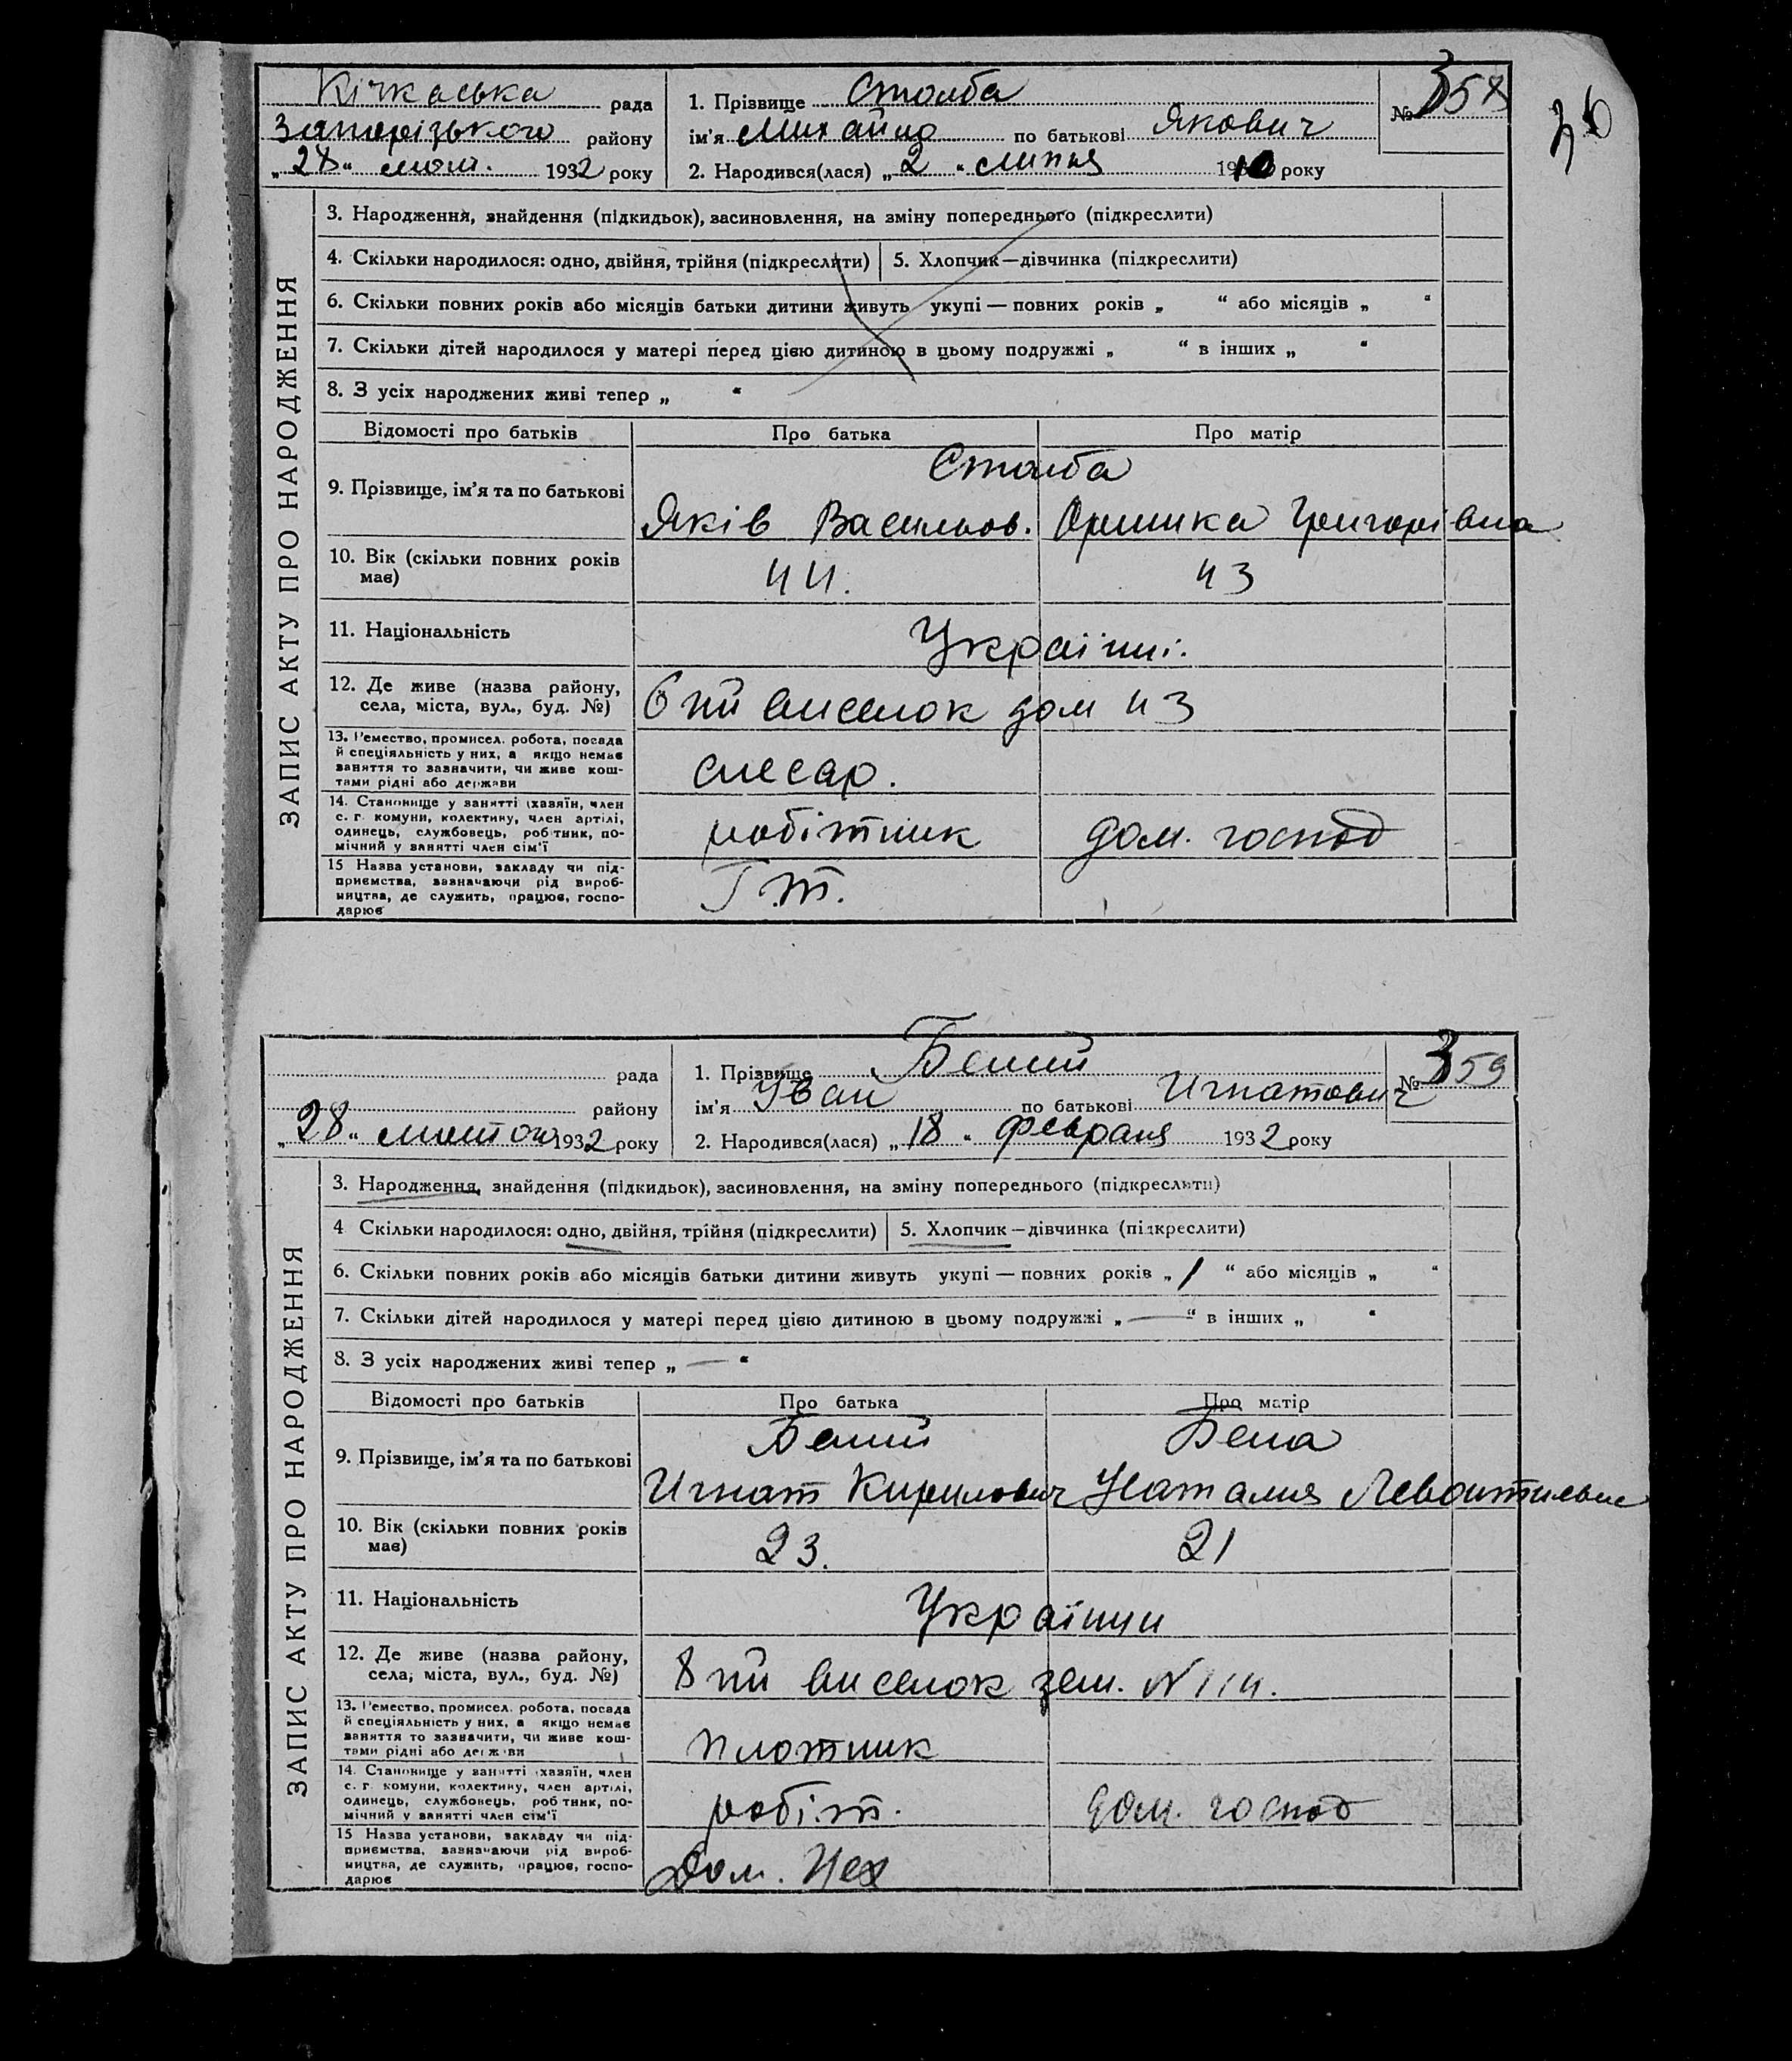 Кічкаська рада
Запорізького району
„28“ лют. 1932 року
1. Прізвище Столба
ім'я Михайло по батькові Якович
2. Народився(лася) „2“ липня 1910 року
№ 358
36
ЗАПИС АКТУ ПРО НАРОДЖЕННЯ
3. Народження, знайдення (підкидьок), засиновлення, на зміну попереднього (підкреслити)
4. Скільки народилося: одно, двійня, трійня (підкреслити) 5. Хлопчик—дівчинка (підкреслити)
6. Скільки повних років або місяців батьки дитини живуть укупі — повних років „ “ або місяців „ “
7. Скільки дітей народилося у матері перед цією дитиною в цьому подружжі „ “ в інших „ “
8. З усіх народжених живі тепер „ “
Відомості про батьків Про батька Про матір
Столба
9. Прізвище, ім'я та по батькові Яків Васильов. Оришка Григорівна
10. Вік (скільки повних років має) 44. 43
11. Національність Україїнці.
12. Де живе (назва району, села, міста, вул., буд. №) 6 ий виселок дом 43
13. Ремество, промисел. робота, посада
й спеціяльність у них, а якщо немає
заняття то зазначити, чи живе кош-
тами рідні або держави
слесар.
14. Становище у занятті (хазяїн, член
с. г. комуни, колективу, член артілі,
одинець, службовець, робітник, по-
мічний у занятті член сім'ї
робітник дом. господ
15 Назва установи, закладу чи під-
приємства, зазначаючи рід вироб-
ництва, де служить, працює, госпо-
дарює
Г.Т.
рада
району
„28“ лютого 1932 року
1. Прізвище Белий
ім'я Иван по батькові Игнатович
2. Народився(лася) „18“ февраля 1932 року
№ 359
ЗАПИС АКТУ ПРО НАРОДЖЕННЯ
3. Народження, знайдення (підкидьок), засиновлення, на зміну попереднього (підкреслити)
4 Скільки народилося: одно, двійня, трійня (підкреслити) 5. Хлопчик—дівчинка (підкреслити)
6. Скільки повних років або місяців батьки дитини живуть укупі — повних років „1“ або місяців „ “
7. Скільки дітей народилося у матері перед цією дитиною в цьому подружжі „—“ в інших „ “
8. З усіх народжених живі тепер „—“
Відомості про батьків Про батька Про матір
Белий Бела
9. Прізвище, ім'я та по батькові Игнат Кирилович Наталия
10. Вік (скільки повних років має) 23. 21
11. Національність Україїнци
12. Де живе (назва району, села, міста, вул., буд. №) 8 ий виселок зем. N 114.
13. Ремество, промисел. робота, посада
й спеціяльність у них, а якщо немає
заняття то зазначити, чи живе кош-
тами рідні або держави
плотник
14. Становище у занятті (хазяїн, член
с. г. комуни, колективу, член артілі,
одинець, службовець, робітник, по-
мічний у занятті член сім'ї
робіт. дом. господ
15 Назва установи, закладу чи під-
приємства, зазначаючи рід вироб-
ництва, де служить, працює, госпо-
дарює
Дом. Цех